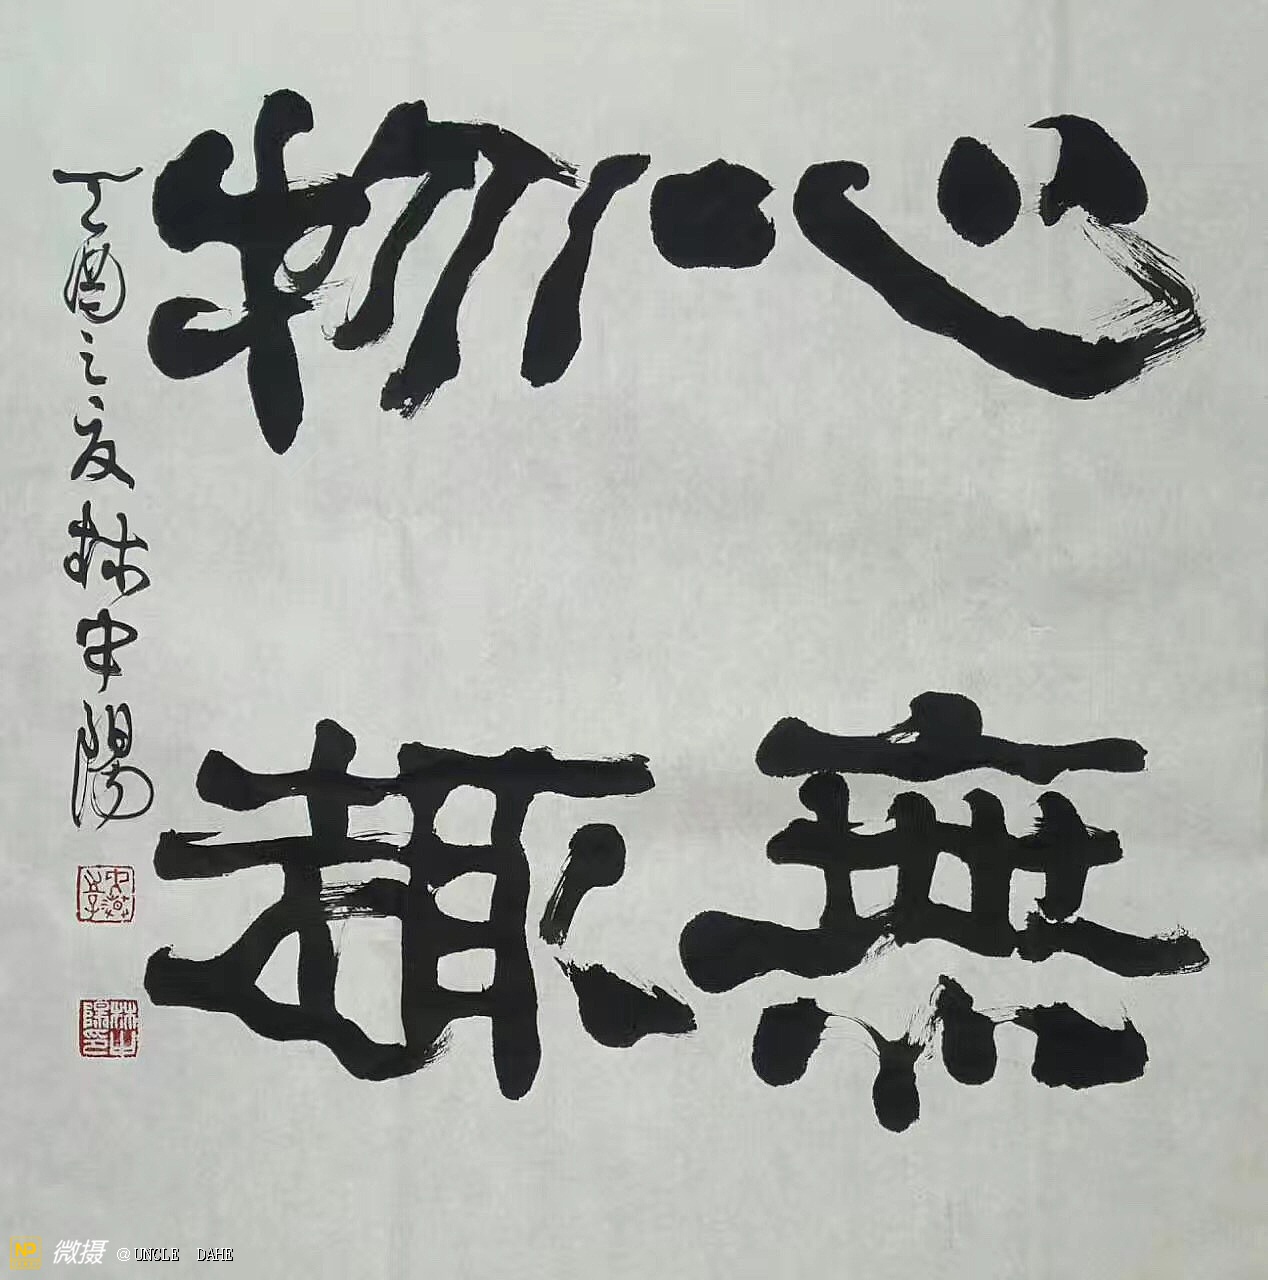 心無
物趣
丁酉之夏林中陽
林中陽印
微摄 @UNCLE DAHE